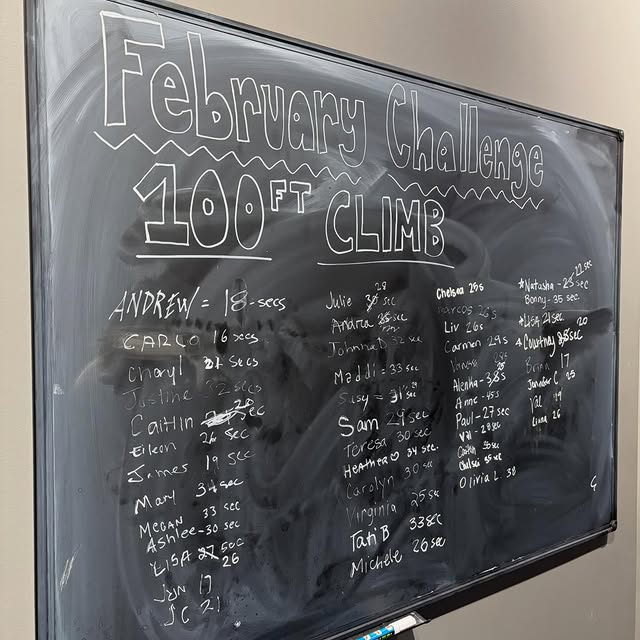 February Challenge
100 FT CLIMB
ANDREW = 18 - secs
CARLO 16 secs
Charyl 21 secs
Justine 22 secs
Caitlin sec
Eileen 26 sec
James 19 sec
Mary 34 sec
MEGAN 33 sec
Ashlee - 30 sec
LISA 27 sec 26
JEN 17
JC 21
Julie 30 28 sec
Andrea sec
sec
Maddi = 33 sec
Susy = sec
Sam 29 sec
Teresa 30 sec
Heather 34 sec.
Carolyn 30 sec
Virginia 25 sec
Tari B 33 sec
Michele 26 sec
Chelsea 26s
Marcos 26s
Liv 26s
Carmen 29s
Alenha - s
Anne - 45s
Paul - 27 sec
Vill - 28 sec
Caitlin 35 sec
Chelsi 35 sec
Olivia L. 30
* Natasha - 25 22 sec
Bonny - 35 sec.
* Lisa 21 sec
* Courtney sec 20
Brian 17
Jennifer C 25
Val 19
26